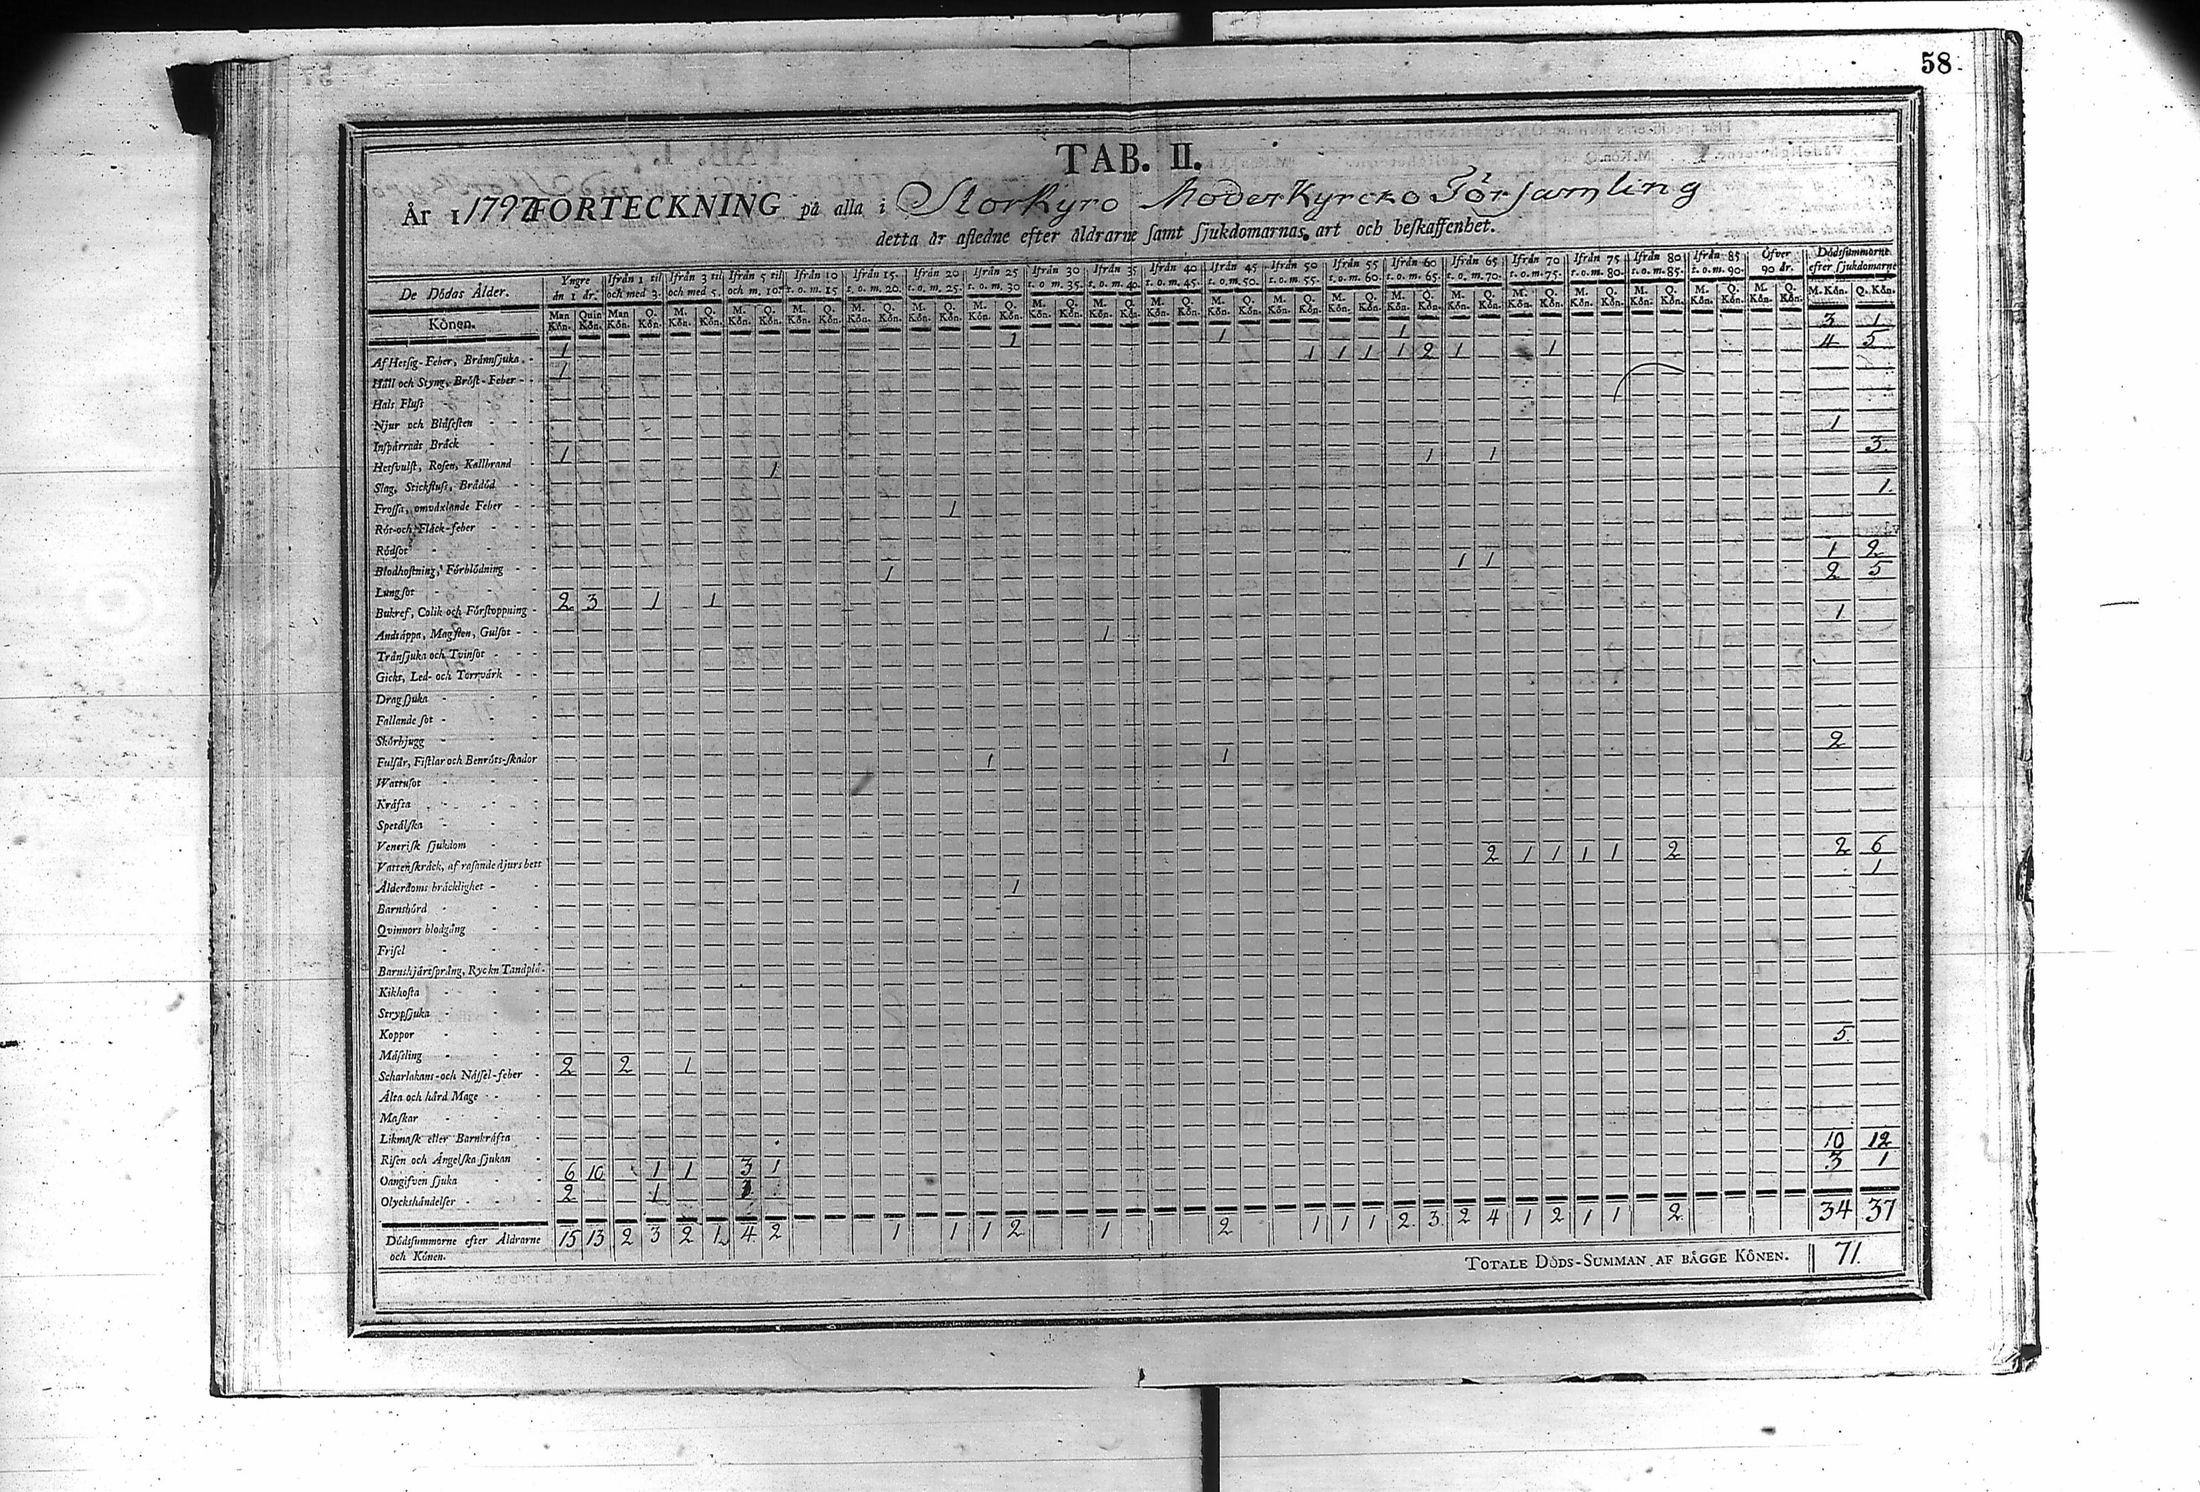 58
TAB. II.
År 1792 FÖRTECKNING på alla i Storkyro Moderkyrcko Församling
detta år afledne efter åldrarne samt sjukdomarnas art och beskaffenhet.
De Dödas Ålder. Yngre än 1 år. Ifrån 1 til och med 3. Ifrån 3 til och med 5. Ifrån 5 til och m. 10. Ifrån 10 t. o. m. 15 Ifrån 15 t. o. m. 20. Ifrån 20 t. o. m. 25. Ifrån 25 t. o. m. 30 Ifrån 30 t. o m. 35. Ifrån 35 t. o. m. 40. Ifrån 40 t. o. m. 45. Ifrån 45 t. o. m. 50. Ifrån 50 t. o. m. 55. Ifrån 55 t. o. m. 60. Ifrån 60 t. o. m. 65. Ifrån 65 t. o. m. 70. Ifrån 70 t. o. m. 75. Ifrån 75 t. o. m. 80. Ifrån 80 t. o. m. 85. Ifrån 85 t. o. m. 90. Öfver 90 år. Dödssummorne efter sjukdomarne
Könen. Man Kön. Quin Kön. Man Kön. Q. Kön. M. Kön. Q. Kön. M. Kön. Q. Kön. M. Kön. Q. Kön. M. Kön. Q. Kön. M. Kön. Q. Kön. M. Kön. Q. Kön. M. Kön. Q. Kön. M. Kön. Q. Kön. M. Kön. Q. Kön. M. Kön. Q. Kön. M. Kön. Q. Kön. M. Kön. Q. Kön. M. Kön. Q. Kön. M. Kön. Q. Kön. M. Kön. Q. Kön. M. Kön. Q. Kön. M. Kön. Q. Kön. M. Kön. Q. Kön. M. Kön. Q. Kön. M. Kön. Q. Kön.
Af Hetsig-Feber, Brännsjuka 1 1 1 1 3 1
Håll och Styng, Bröst-Feber 1 1 1 1 1 2 1 1 4 5
Hals Fluss
Njur och Blåsesten
Inspärradt Bråck
Hetsvulst, Rosen, Kallbrand 1 1
Slag, Stickfluss, Brådöd 1 1 1 3
Frossa, omväxlande Feber
Röt-och Fläck-feber 1 1.
Rödsot
Blodhostning, Förblödning
Lungsot 1 1 1 1 2
Bukref, Colik och Förstoppning 2 3 1 1 2 5
Andtäppa, Magsten, Gulsot 1 1
Trånsjuka och Tvinsot
Gickt, Led- och Torrvärk
Dragsjuka
Fallande sot
Skörbjugg
Fulsår, Fistlar och Benröts-skador 1 1 2
Wattusot
Kräfta
Spetälska
Venerisk sjukdom
Vattenskräck, af rasande djurs bett
Ålderdoms bräcklighet 2 1 1 1 1 2 2 6
Barnsbörd 1 1
Qvinnors blodgång
Frisel
Barnshjärtsprång, Ryck n Tandplå.
Kikhosta
Strypsjuka
Koppor
Mässling
Scharlakans-och Nässel-feber 2 2 1 5
Älta och hård Mage
Maskar
Likmask eller Barnkräfta
Risen och Ängelska sjukan
Oangifven sjuka 6 10 1 1 3 1 10 12
Olyckshändelser 2 1 1 3 1
Dödssummorne efter Åldrarne och Könen. 15 13 2 3 2 1 4 2 1 1 1 2 1 2 1 1 1 2 3 2 4 1 2 1 1 2 34 37
TOTALE DÖDS-SUMMAN AF BÅGGE KÖNEN. 71.